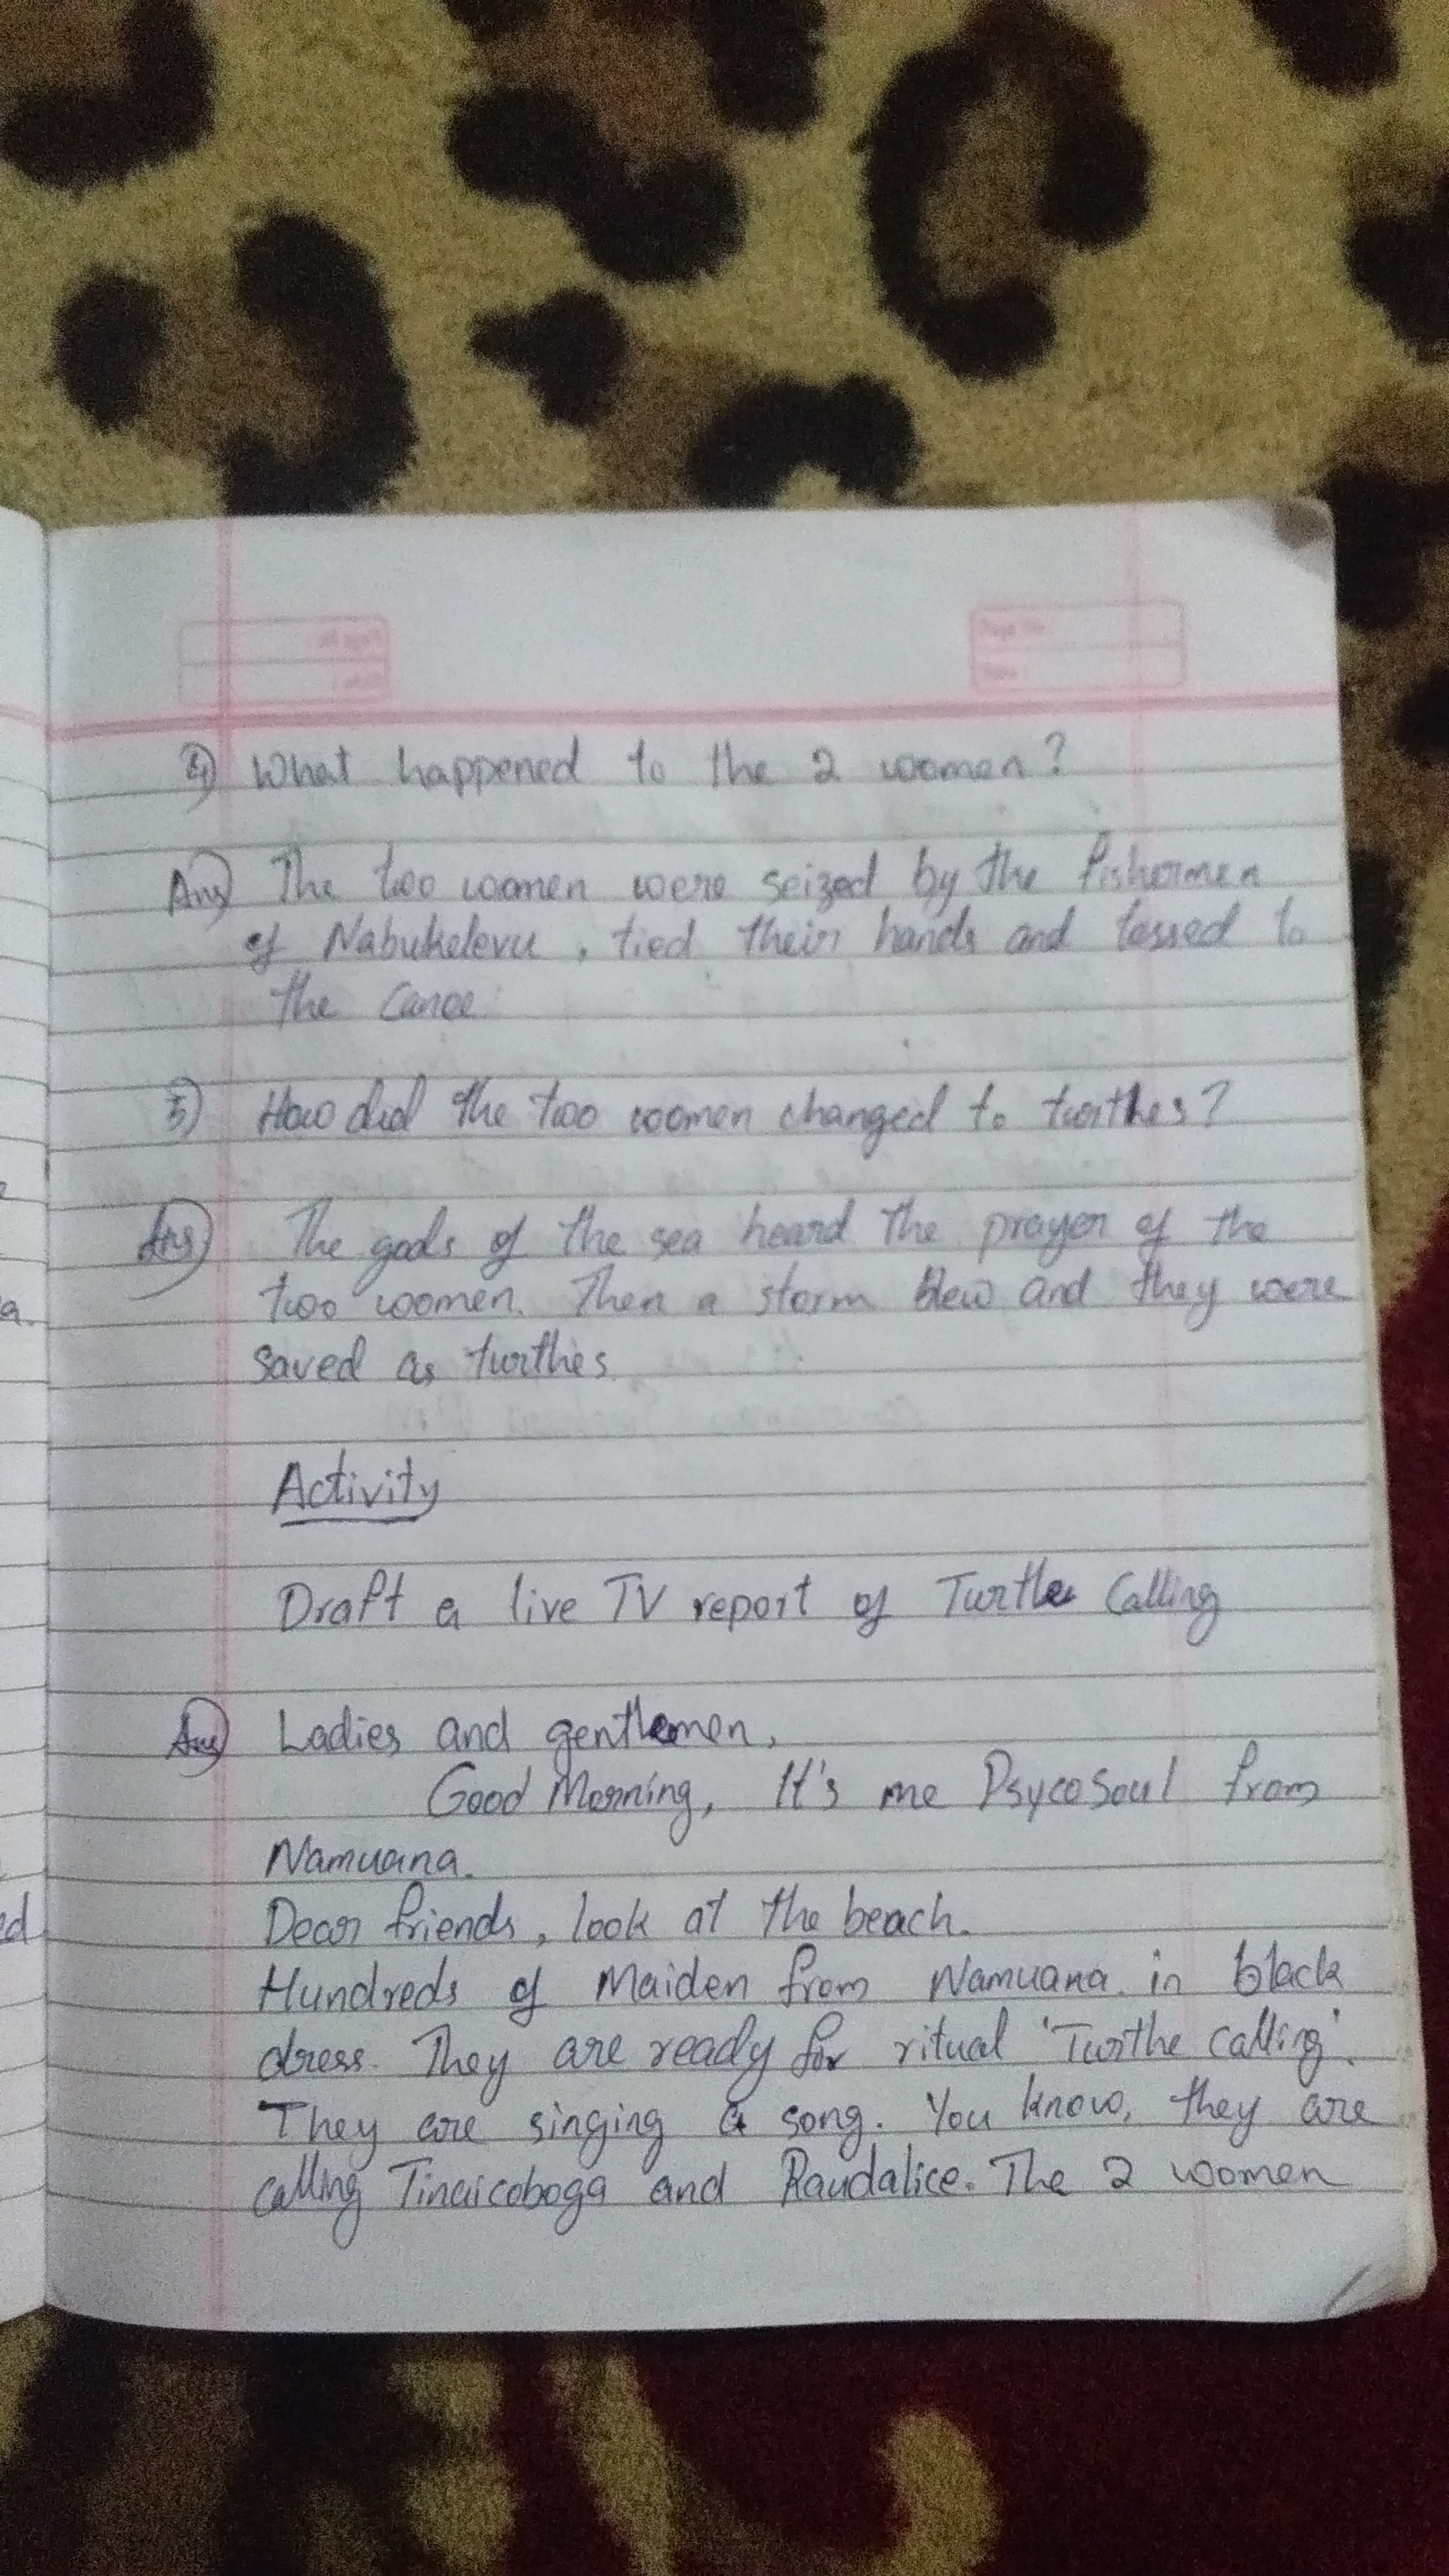 Page No:
Date:
4) What happened to the 2 women?
Ans) The two women were seized by the fishermen
of Nabukelevu, tied their hands and tossed to
the canoe.
5) How did the two women changed to turthes?
Ans) The gods of the sea heard the prayer of the
two women. Then a storm blew and they were
saved as turthes.
Activity
Draft a live TV report of Turtle Calling
Ans) Ladies and gentlemen,
Good Morning, It's me Psyco Soul from
Namuana.
Dear friends, look at the beach.
Hundreds of Maiden from Namuana in black
dress. They are ready for ritual 'Turthe calling'.
They are singing a song. You know, they are
calling Tinaicoboga and Raudalice. The 2 women
a.
ed